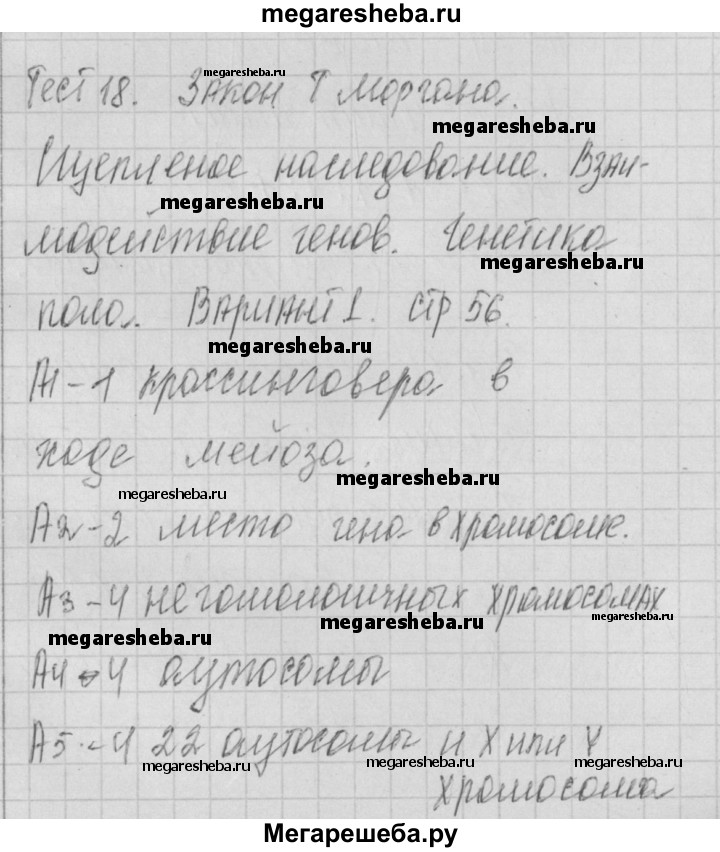 megaresheba.ru
Тест 18. Закон Т Моргана.
megaresheba.ru
megaresheba.ru
Сцепленое наследование. Взаи-
megaresheba.ru
модействие генов. Генетика
megaresheba.ru
пола. Вариант 1. стр 56.
megaresheba.ru
А1-1 кроссинговера в
ходе мейоза.
megaresheba.ru
megaresheba.ru
А2-2 место гена в хромосоме.
А3-4 негомологичных хромосомах
megaresheba.ru
megaresheba.ru
megaresheba.ru
А4-4 аутосомы
А5-4 22 аутосомы и X или Y
megaresheba.ru
megaresheba.ru
megaresheba.ru
хромосома
Мегарешеба.ру